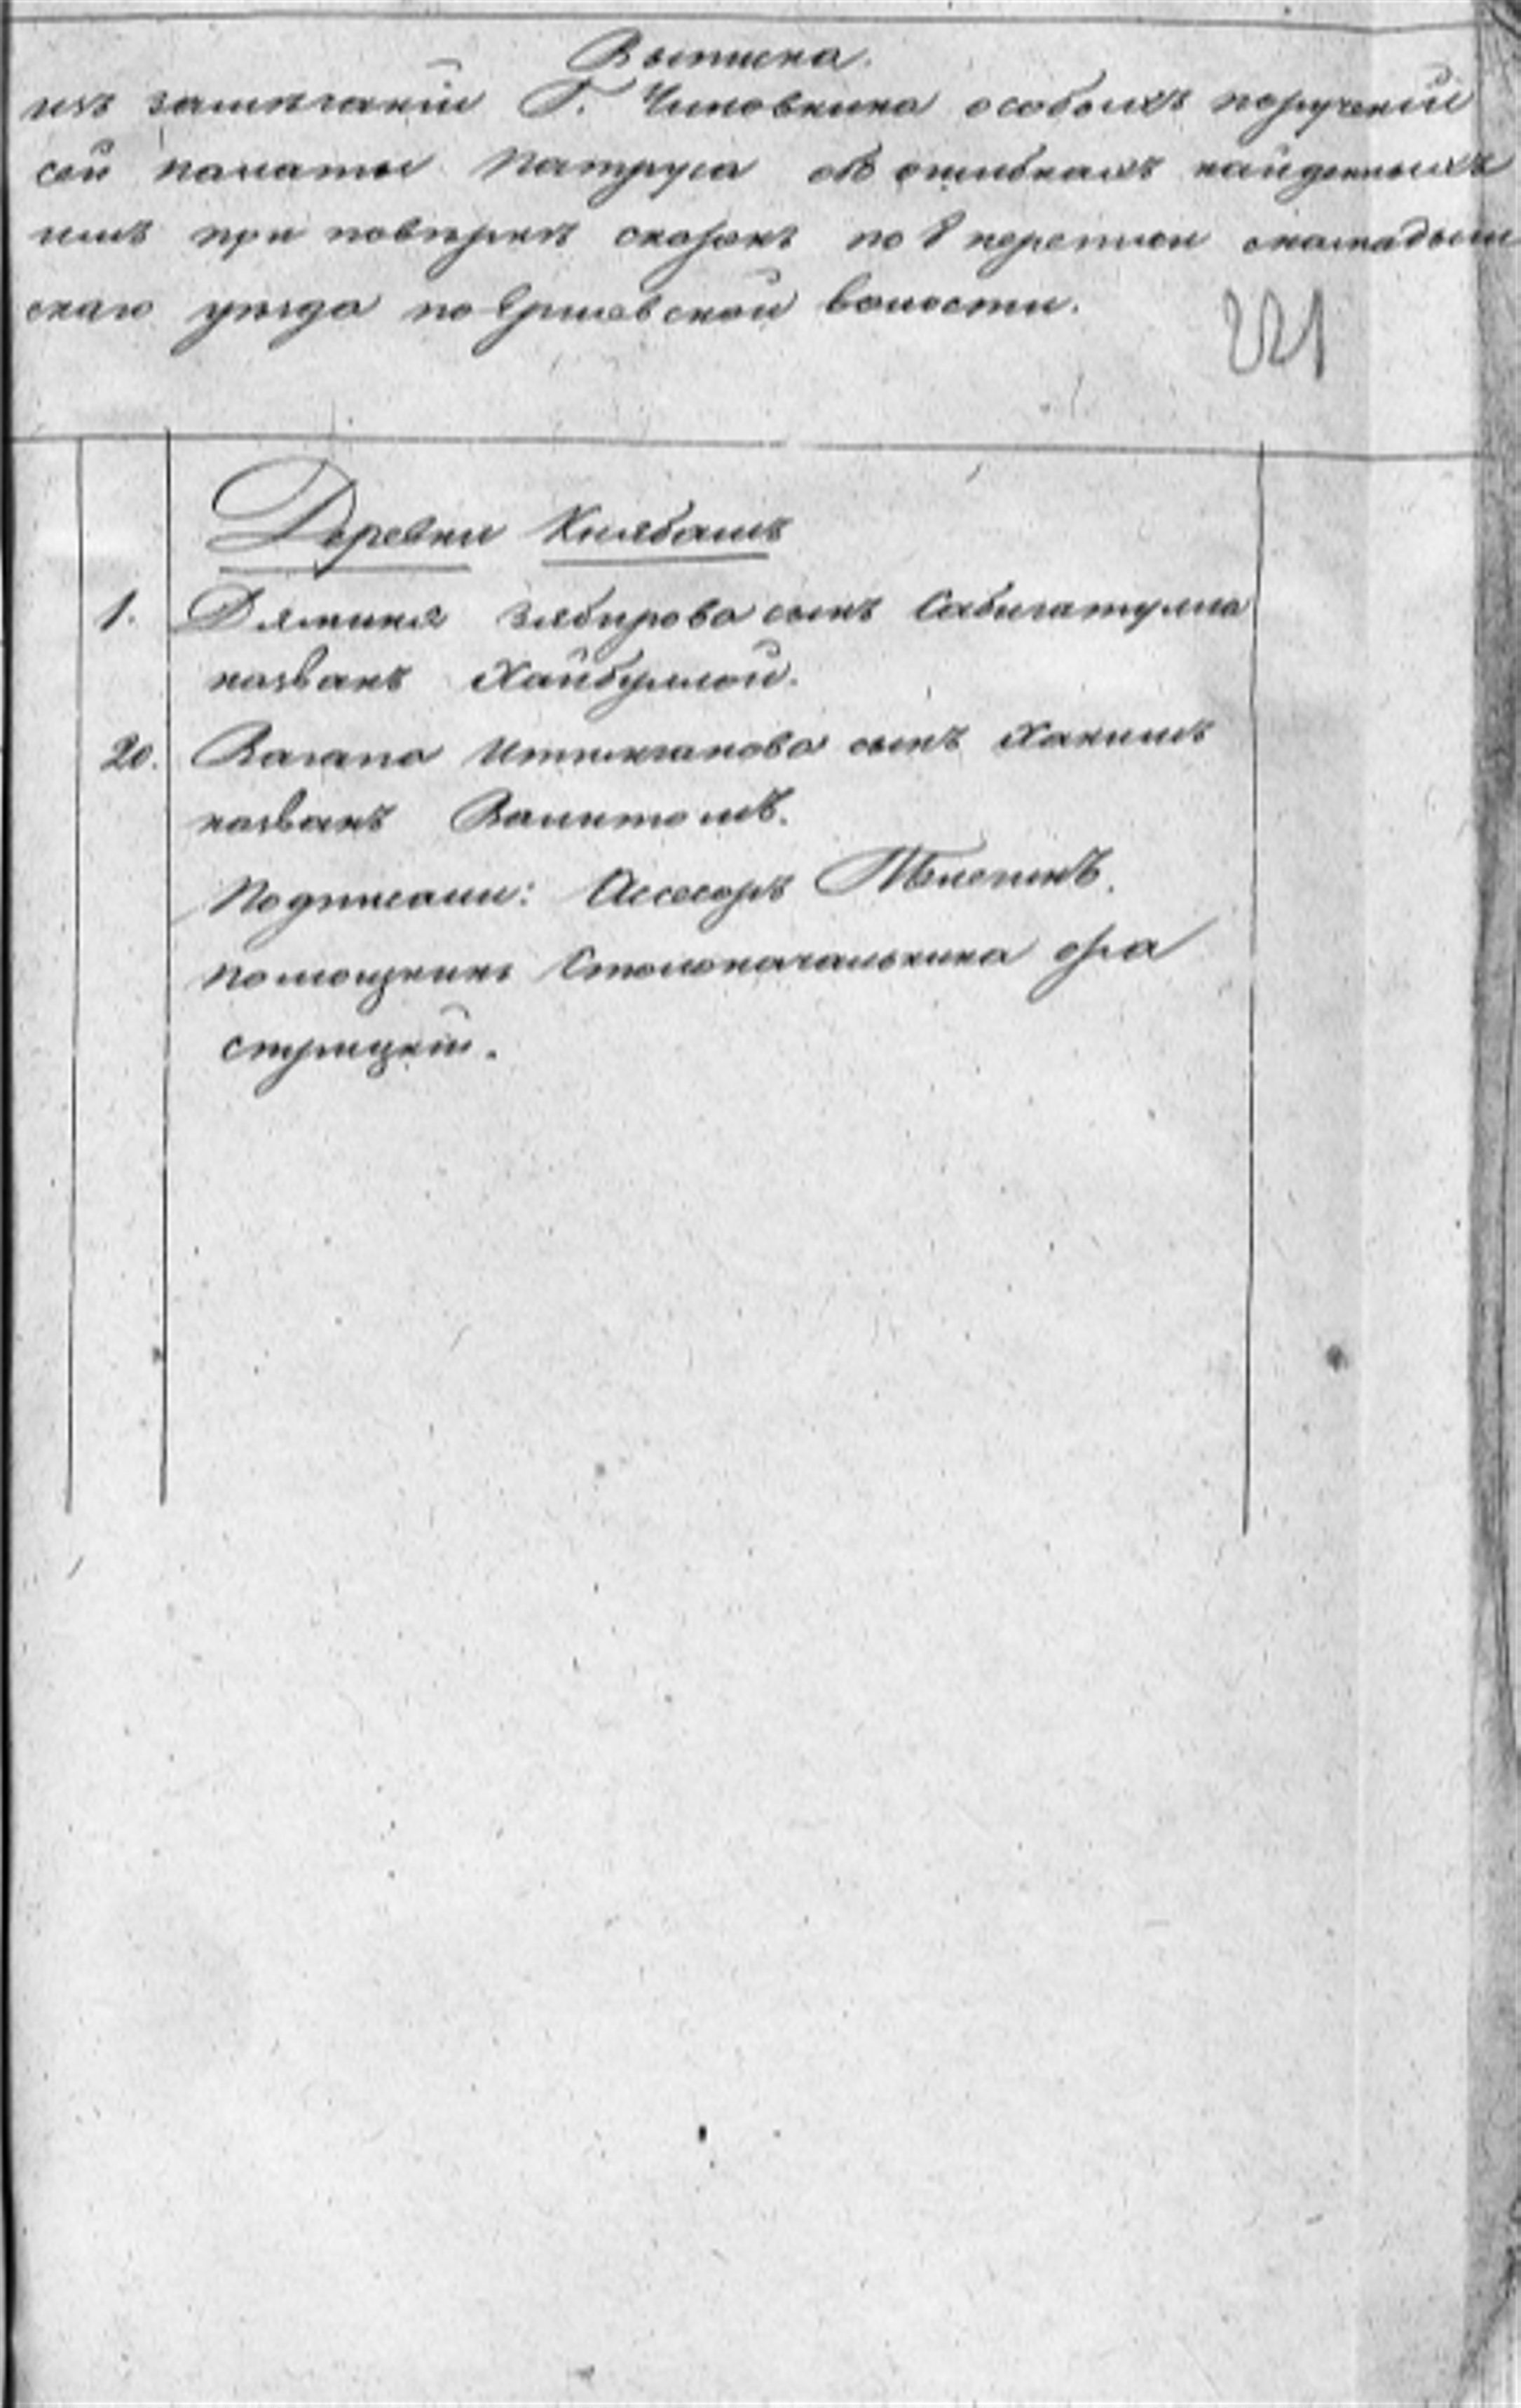 Выписка.
изъ замѣчаніи Г. Чиновника особыхъ порученій
сей палаты Патруса объ ошибкахъ найденныхъ
имъ при повѣркѣ сказокъ по 8 переписи мамадыш
скаго уѣзда по Ершовской волости.
221
Деревни Князбашъ
1. Дямина Зябирова сынъ Сабигатулла
названъ Хайбуллой.
20. Вагапа сынъ Хакимъ
названъ Валитомъ.
Подписали: Ассесоръ
помощникъ Столоначальника